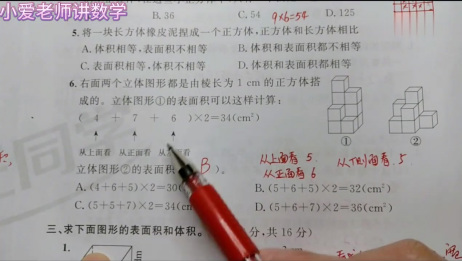 小爱老师讲数学
B. 36
C. 54
9×6=54
D. 125
5. 将一块长方体橡皮泥捏成一个正方体,正方体和长方体相比
A. 体积相等,表面积不相等
B. 体积和表面积都不相等
C. 表面积相等,体积不相等
D. 体积和表面积都相等
6. 右面两个立体图形都是由棱长为 1 cm 的正方体搭
成的。立体图形①的表面积可以这样计算:
( 4 + 7 + 6 )×2=34(cm²)
① ②
从上面看 从正面看
立体图形②的表面积
B )。
从上面看 5
从正面看 6
从左面看 5
A. (4+6+5)×2=30(
B. (5+6+5)×2=32(cm²)
C. (5+5+7)×2=34(c
D. (5+7+6)×2=36(cm²)
三、求下面图形的表面积和体积。
分,共 16 分)
1.